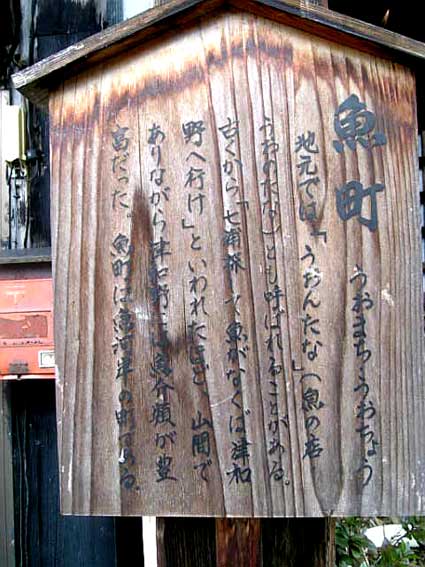 魚町
うおまち・うおちょう
地元では「うおんたな」(魚の店
うおのたな)とも呼ばれることがある。
古くから「七浦 て魚がなくば津和
野へ行け」といわれたほど、山間で
ありながら津和野には魚介類が豊
富だった。魚町は魚河岸の町である。